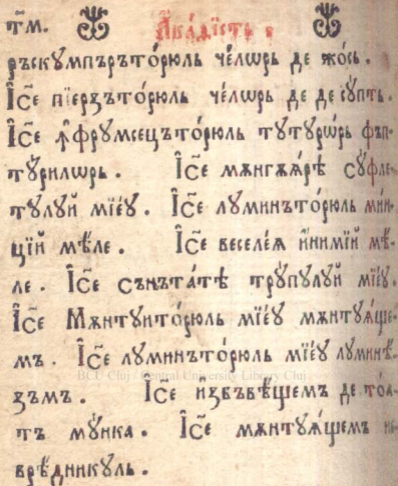 т҃м. Акаѳїстъ
ръскꙋмпъръто́рюль че́лѡръ де жо́сь.
І҆с҃е пїерзъто́рюль че́лѡръ де десꙋ́пть.
І҆с҃е ꙟ҆фрꙋмсецъто́рюль тꙋтꙋрѡ́ръ фъп-
тꙋ́рилѡръ. І҆с҃е мѫнгѫ́ѧрѣ сꙋ́фле-
тꙋлꙋй мїе́ꙋ. І҆с҃е лꙋминъто́рюль мин-
цїй мѣ́ле. І҆с҃е весели́ѧ и҆́нимїй мѣ́-
ле. І҆с҃е сънъта́тѣ трꙋ́пꙋлꙋй мїе́ꙋ.
І҆с҃е Мѫнтꙋито́рюль мїе́ꙋ мѫнтꙋѧ́ще-
мъ. І҆с҃е лꙋминъто́рюль мїе́ꙋ лꙋминѣ́-
зъмъ. І҆с҃е и҆збъвѣ́щемъ де то́а-
тъ мꙋ́нка. І҆с҃е мѫнтꙋѧ́щемъ не-
вре́дникꙋль.
BCU Cluj / Central University Library Cluj